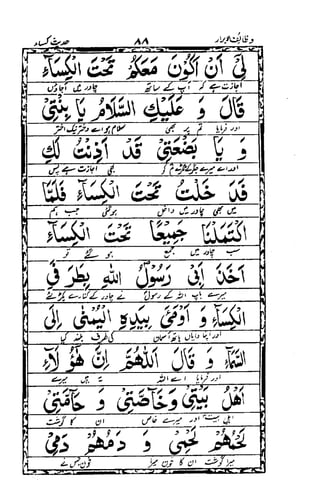 وظائف الابرار ۸۸ حدیث کساء
لِيْ اَنْ اَكُوْنَ مَعَكُمْ تَحْتَ الْكِسَاءِ
اجازت ہے کہ آپ کے ساتھ چادر میں آجاؤں
قَالَ وَ عَلَيْكِ السَّلَامُ يَا بِنْتِيْ
اور فرمایا تم پر بھی سلام ہو اے دختر نیک اختر
وَ يَا بَضْعَتِيْ قَدْ اَذِنْتُ لَكِ
اور اے میرے تم کو بھی اجازت ہے پس
فَدَخَلْتُ تَحْتَ الْكِسَاءِ فَلَمَّا
میں بھی چادر میں داخل ہوگئی جب ہم
اكْتَمَلْنَا جَمِيْعًا تَحْتَ الْكِسَاءِ
سب چادر میں جمع ہو گئے تو
اَخَذَ اَبِيْ رَسُوْلُ اللهِ بِطَرَفَيِ
میرے باپ اللہ کے رسول نے چادر کے کنارے پکڑے
الْكِسَاءِ وَ اَوْمٰى بِيَدِهِ الْيُمْنٰى اِلَى
اور اپنا دایاں ہاتھ آسمان کی طرف بلند کیا
السَّمَاءِ وَ قَالَ اَللّٰهُمَّ اِنَّ هٰؤُلَاءِ
اور فرمایا اے اللہ یہ ہیں میرے
اَهْلُ بَيْتِيْ وَ خَاصَّتِيْ وَ حَامَّتِيْ
اہل بیت اور میرے خاص ان کا گوشت
لَحْمُهُمْ لَحْمِيْ وَ دَمُهُمْ دَمِيْ
میرا گوشت ان کا خون میرا خون جس نے